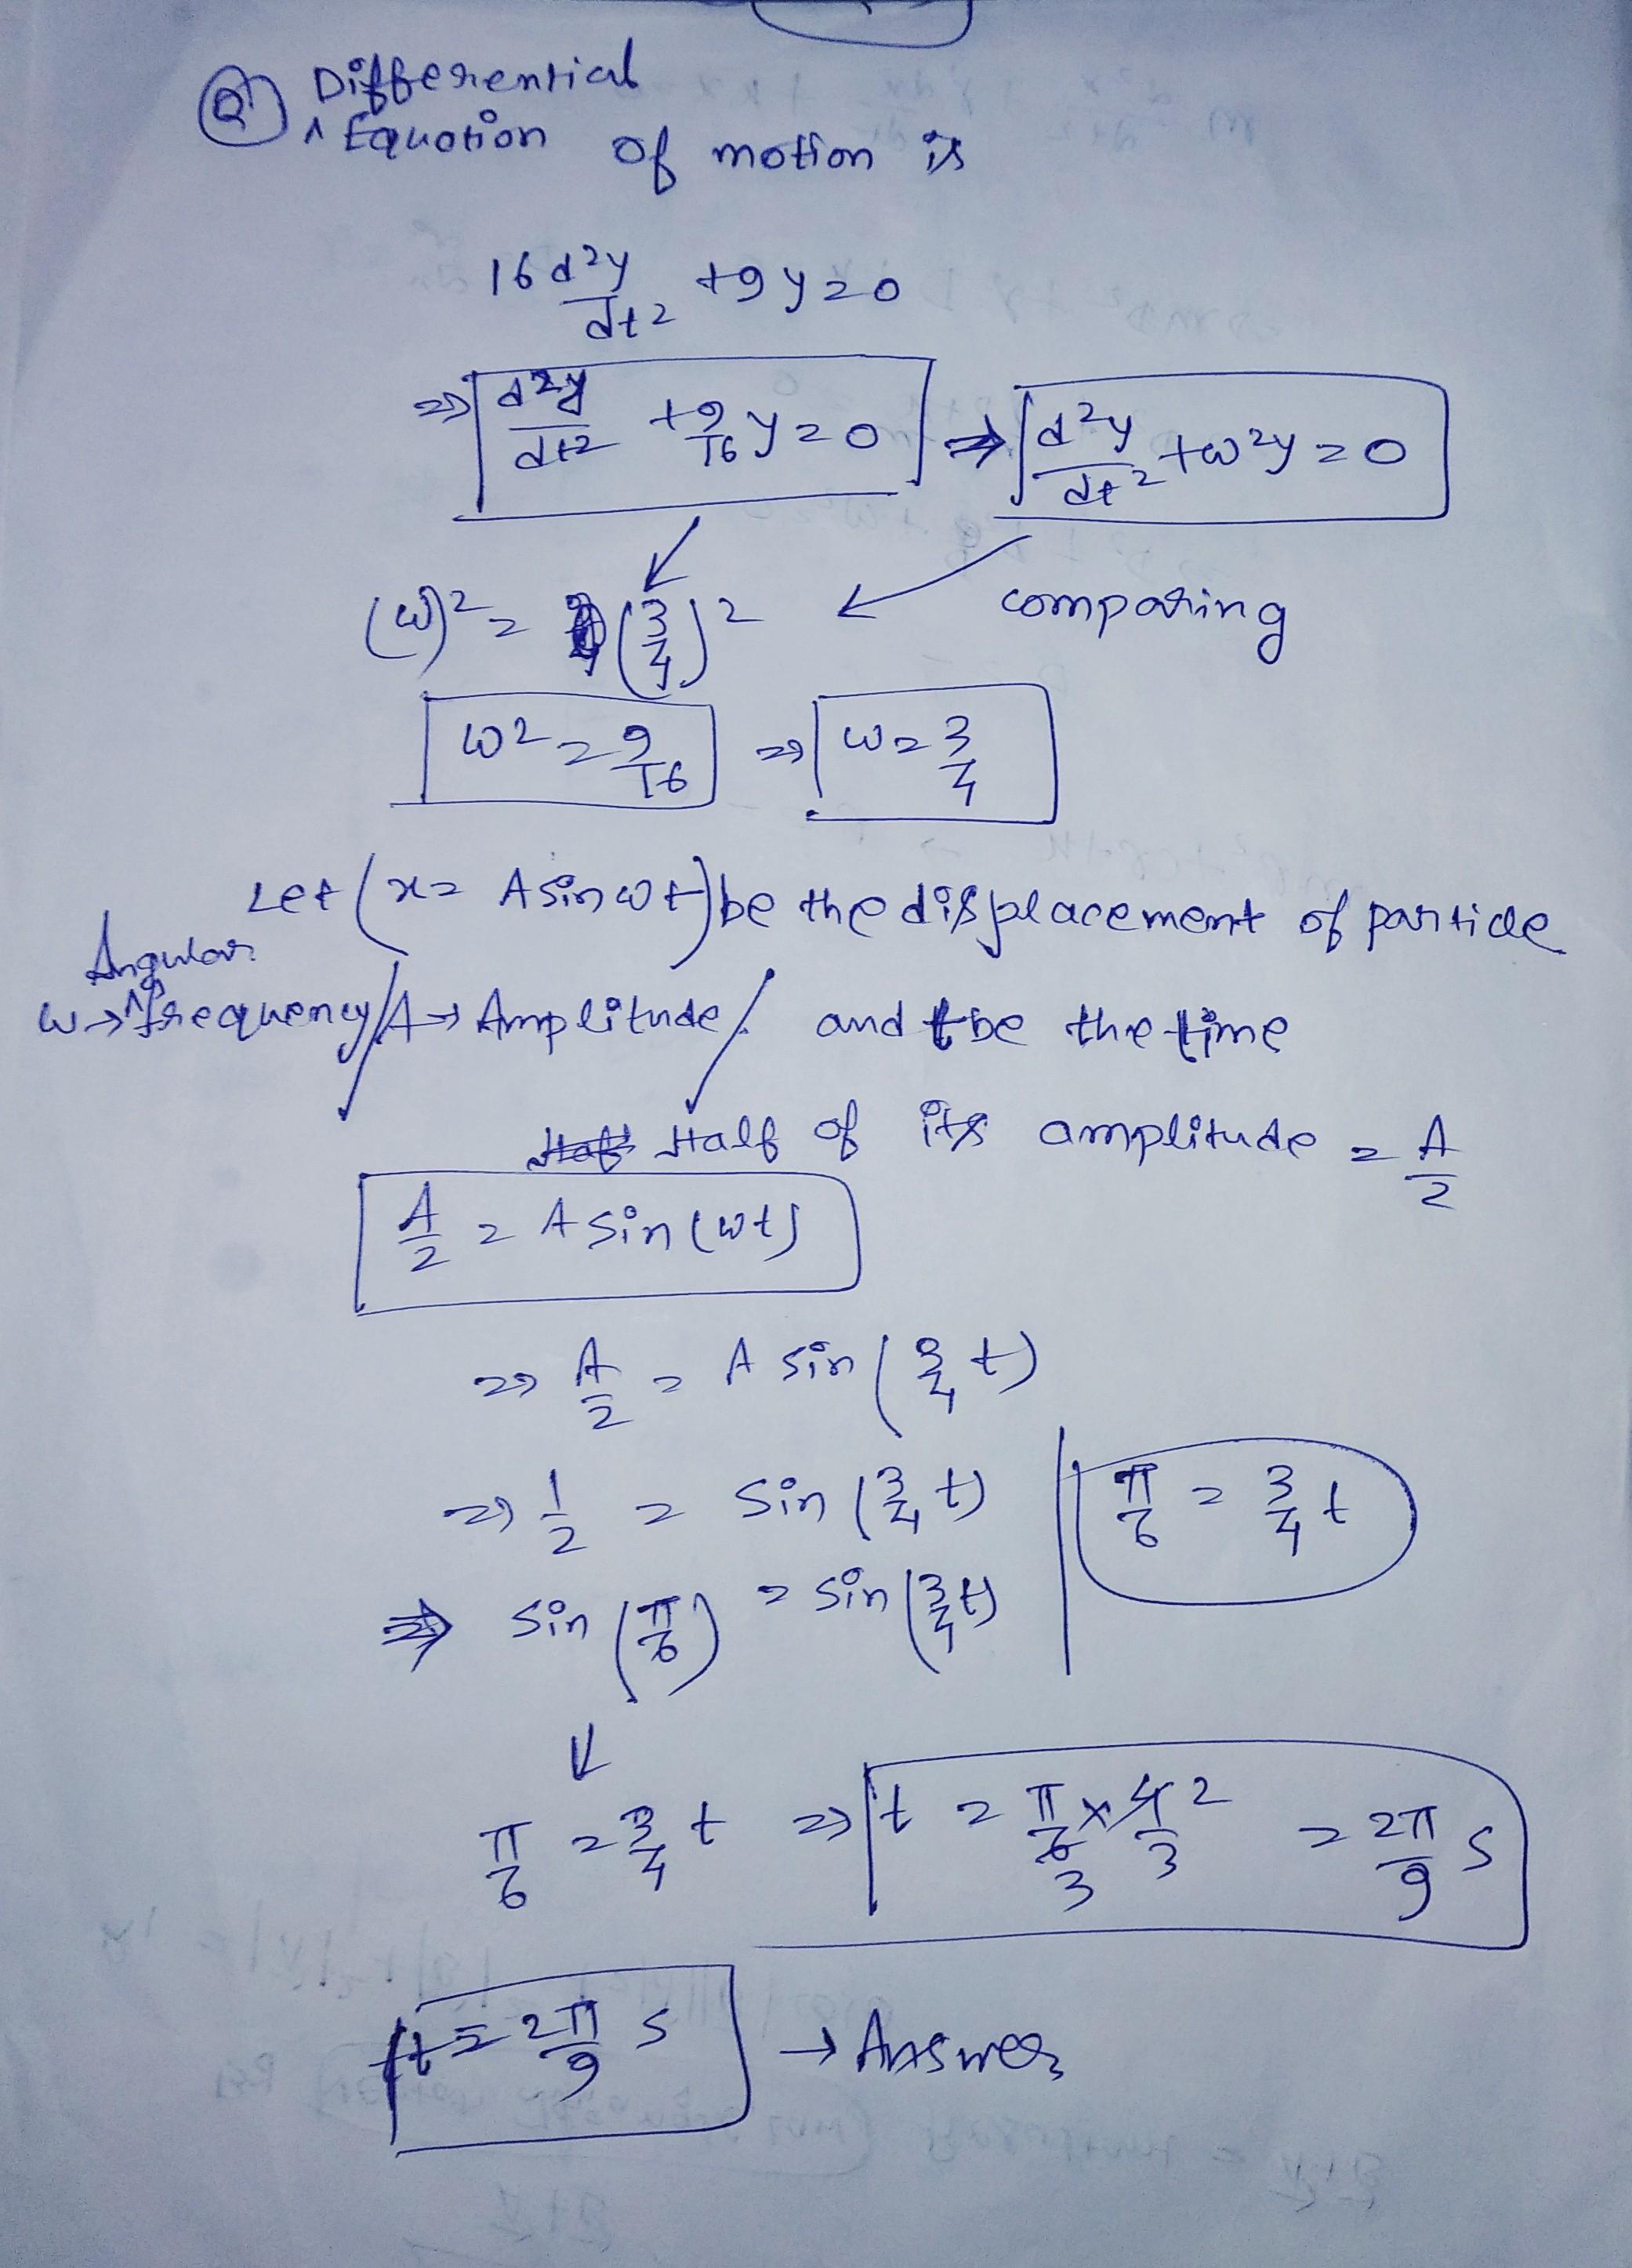 Q) Differential
^ Equation of motion is
16 d²y/dt² + 9y = 0
⇒ d²y/dt² + 9/16 y = 0 ⇒ d²y/dt² + ω²y = 0
(ω)² = (3/4)² comparing
ω² = 9/16 ⇒ ω = 3/4
Let (x = A sin ωt) be the displacement of particle
Angular
ω → ^ frequency / A → Amplitude / and t be the time
Half of its amplitude = A/2
A/2 = A sin (ωt)
⇒ A/2 = A sin (3/4 t)
⇒ 1/2 = sin (3/4 t) | π/6 = 3/4 t
⇒ sin (π/6) = sin (3/4 t)
↓
π/6 = 3/4 t ⇒ t = π/6 × 4/3 = 2π/9 s
3 2
t = 2π/9 s → Answer